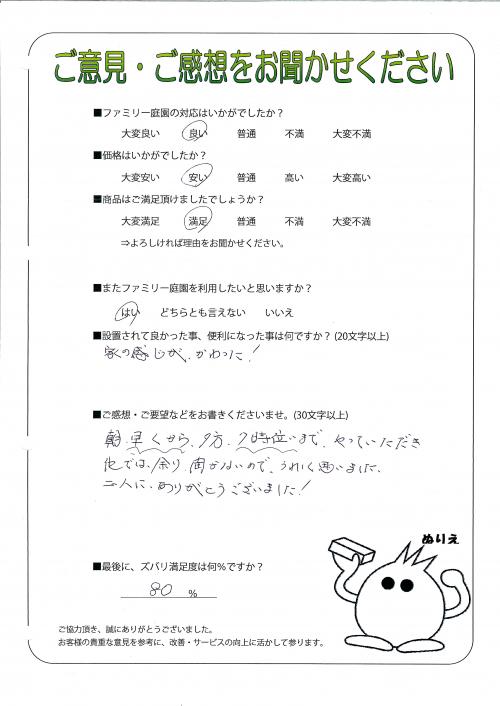 ご意見・ご感想をお聞かせください
■ファミリー庭園の対応はいかがでしたか?
大変良い 良い 普通 不満 大変不満
■価格はいかがでしたか?
大変安い 安い 普通 高い 大変高い
■商品はご満足頂けましたでしょうか?
大変満足 満足 普通 不満 大変不満
⇒よろしければ理由をお聞かせください。
■またファミリー庭園を利用したいと思いますか?
はい どちらとも言えない いいえ
■設置されて良かった事、便利になった事は何ですか? (20文字以上)
家の感じが、かわった!
■ご感想・ご要望などをお書きくださいませ。(30文字以上)
朝、早くから、夕方、7時位いまで、やっていただき
他では、余り、聞かないので、うれしく思いました、
二人に、ありがとうございました!
■最後に、ズバリ満足度は何%ですか?
80 %
ぬりえ
ご協力頂き、誠にありがとうございました。
お客様の貴重な意見を参考に、改善・サービスの向上に活かして参ります。